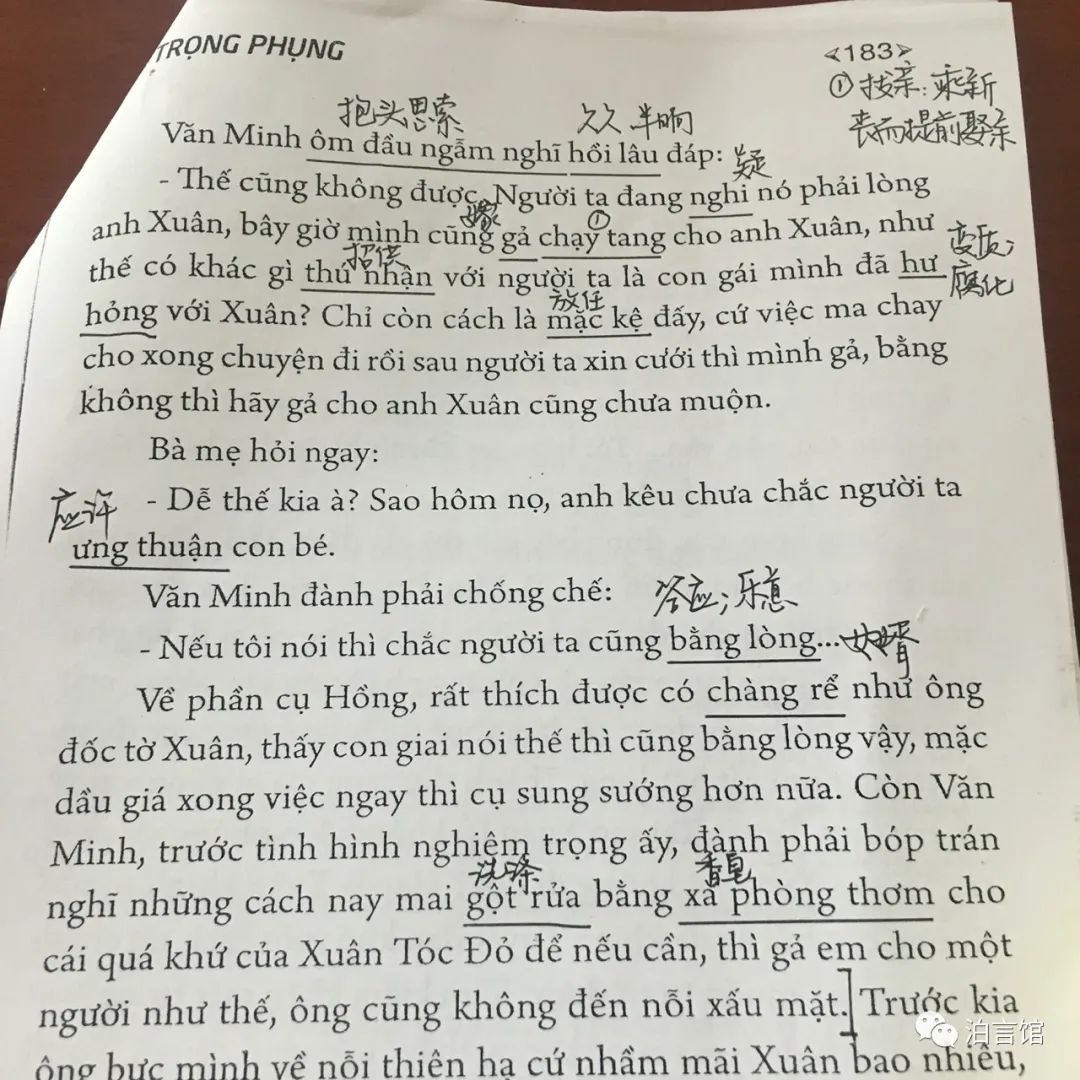 TRỌNG PHỤNG
<183>
①找亲:乘新
丧而提前娶亲
抱头思索 久久 半晌
Văn Minh ôm đầu ngẫm nghĩ hồi lâu đáp:
疑
- Thế cũng không được. Người ta đang nghi nó phải lòng
嫁 ①
anh Xuân, bây giờ mình cũng gả chạy tang cho anh Xuân, như
招供 变质;
thế có khác gì thú nhận với người ta là con gái mình đã hư
放任 腐化
hỏng với Xuân? Chỉ còn cách là mặc kệ đấy, cứ việc ma chay
cho xong chuyện đi rồi sau người ta xin cưới thì mình gả, bằng
không thì hãy gả cho anh Xuân cũng chưa muộn.
Bà mẹ hỏi ngay:
应许
- Dễ thế kia à? Sao hôm nọ, anh kêu chưa chắc người ta
ưng thuận con bé.
Văn Minh đành phải chống chế:
答应;乐意
- Nếu tôi nói thì chắc người ta cũng bằng lòng...
女婿
Về phần cụ Hồng, rất thích được có chàng rể như ông
đốc tờ Xuân, thấy con giai nói thế thì cũng bằng lòng vậy, mặc
dầu giá xong việc ngay thì cụ sung sướng hơn nữa. Còn Văn
Minh, trước tình hình nghiêm trọng ấy, đành phải bóp trán
洗涤 香皂
nghĩ những cách nay mai gột rửa bằng xà phòng thơm cho
cái quá khứ của Xuân Tóc Đỏ để nếu cần, thì gả em cho một
người như thế, ông cũng không đến nỗi xấu mặt.] Trước kia
ông bực mình về nỗi thiên hạ cứ nhầm mãi Xuân bao nhiêu,
泊言馆